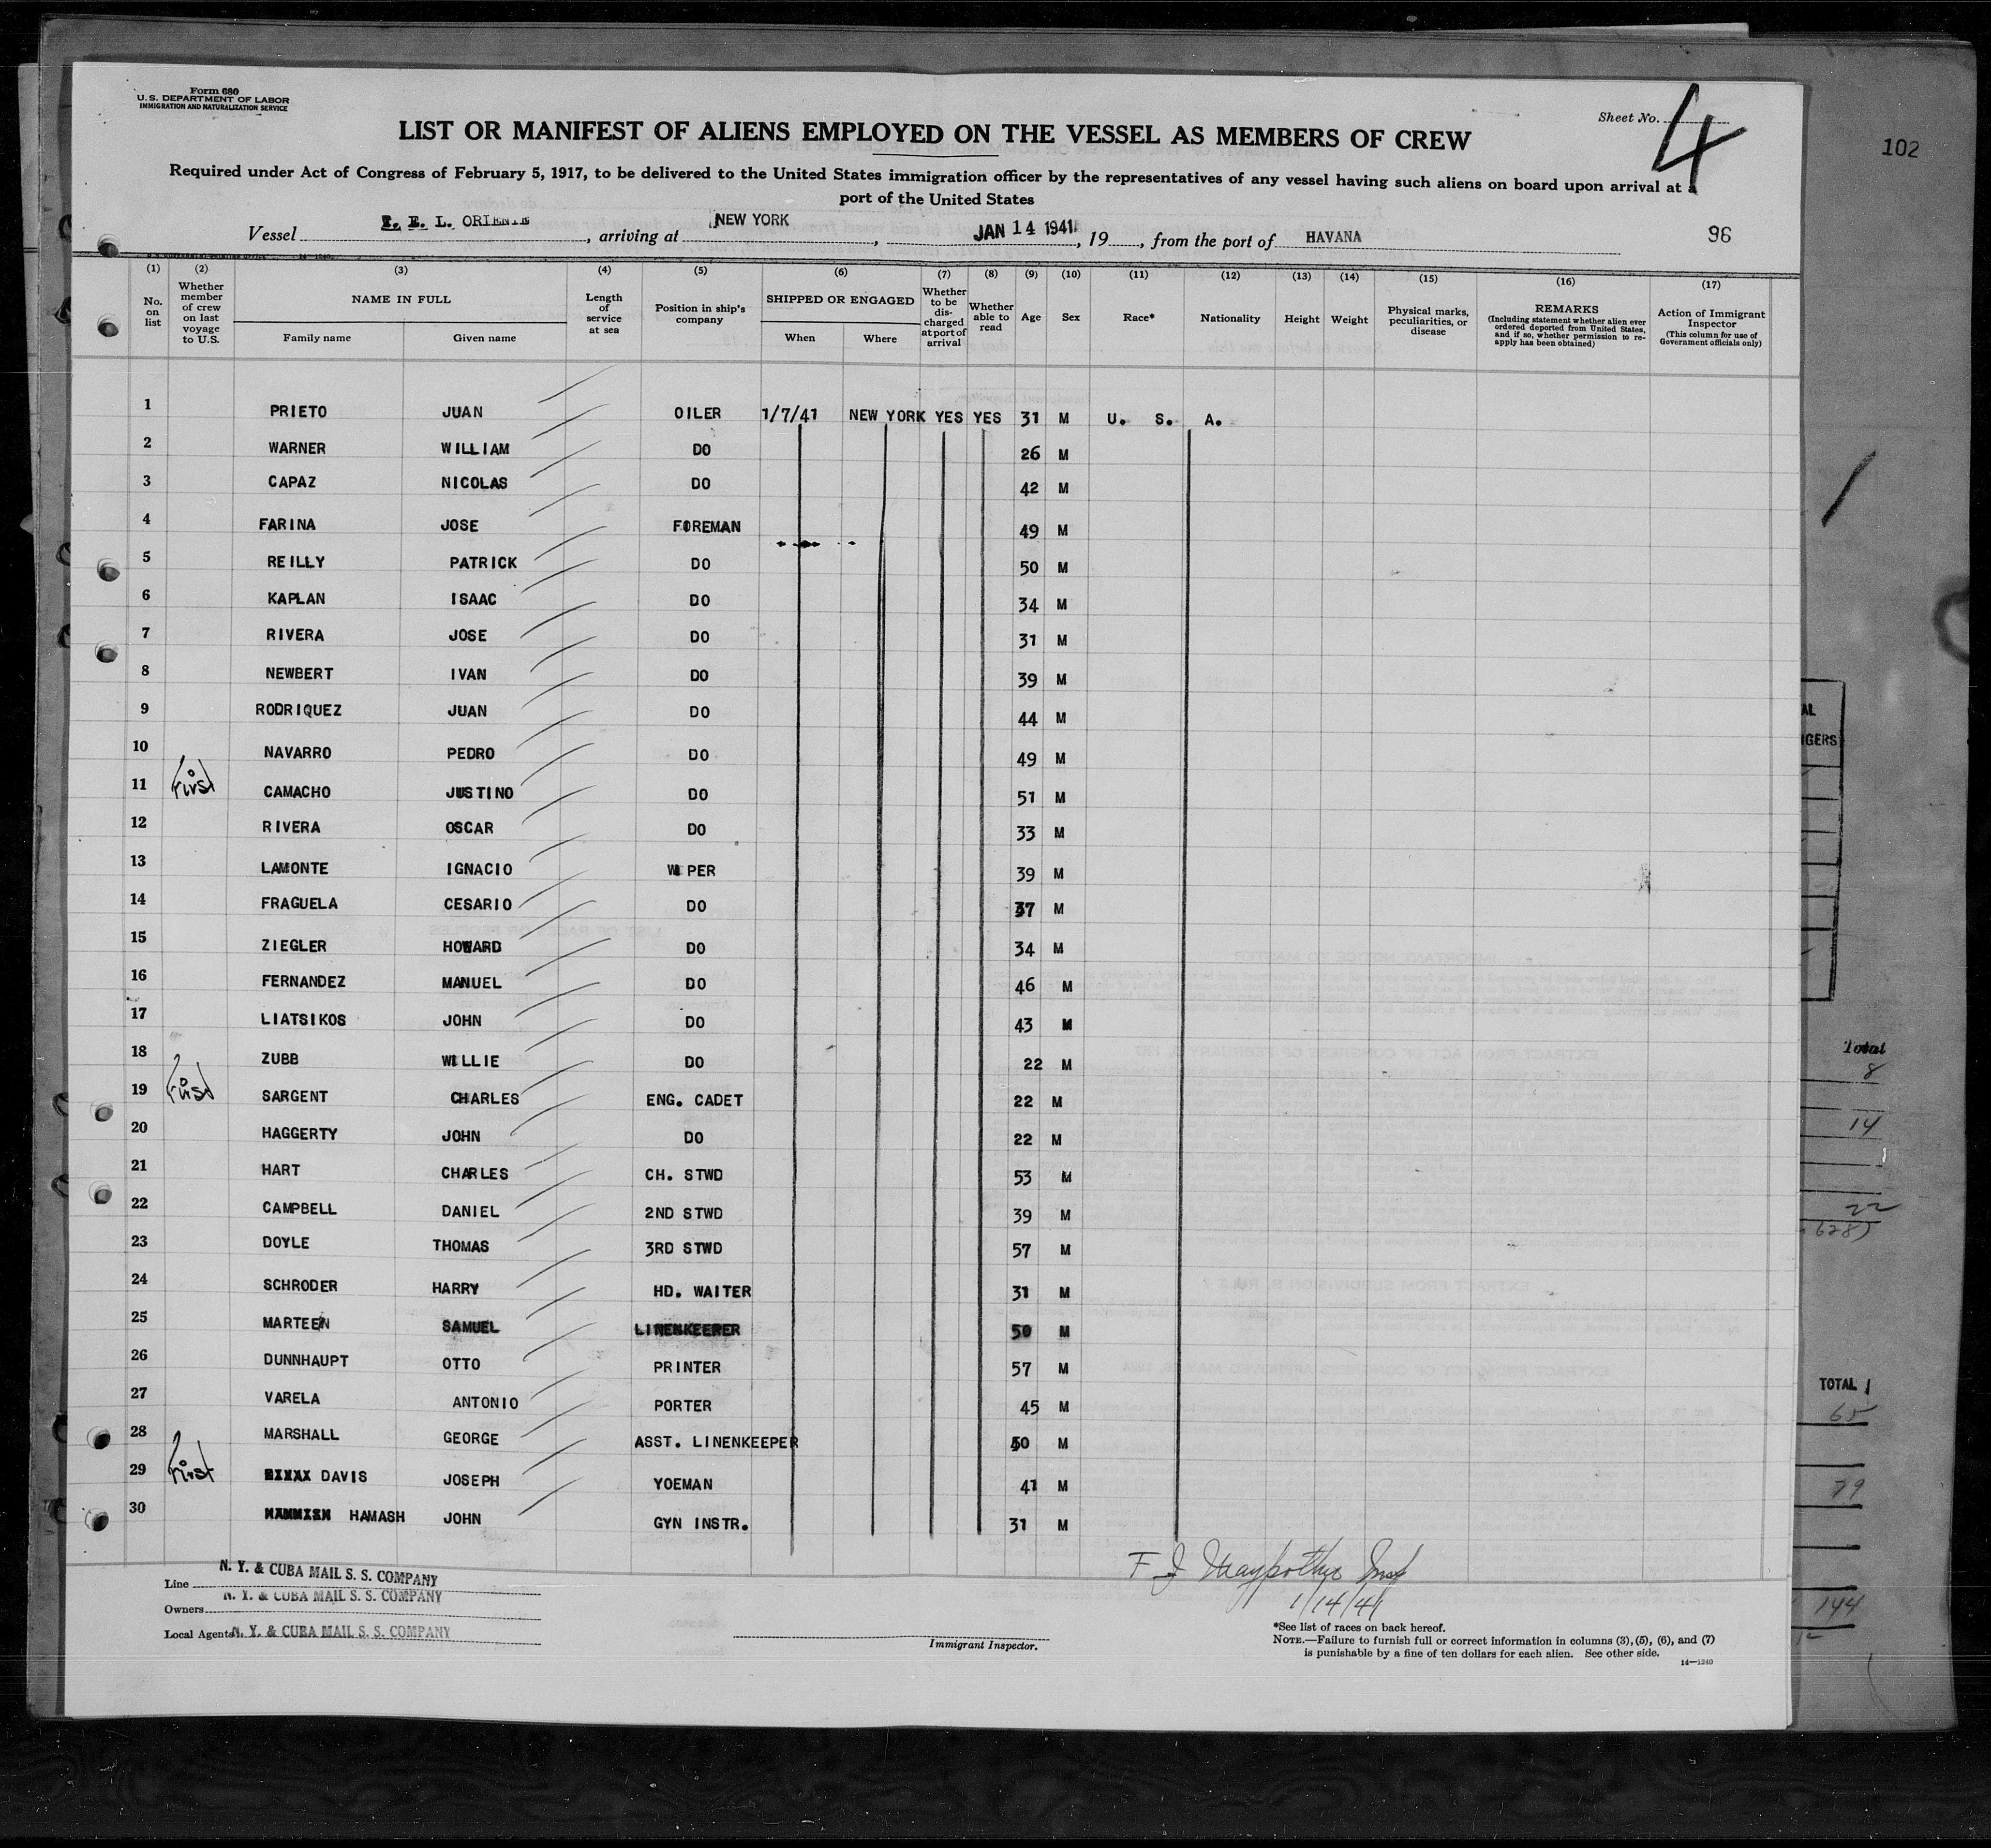 Form 680
U.S. DEPARTMENT OF LABOR
IMMIGRATION AND NATURALIZATION SERVICE
Sheet No. 4
102
LIST OR MANIFEST OF ALIENS EMPLOYED ON THE VESSEL AS MEMBERS OF CREW
Required under Act of Congress of February 5, 1917, to be delivered to the United States immigration officer by the representatives of any vessel having such aliens on board upon arrival at a
port of the United States
Vessel T. E. L. ORIENTE, arriving at NEW YORK, JAN 14 1941, 19, from the port of HAVANA 96
(1) (2) (3) (4) (5) (6) (7) (8) (9) (10) (11) (12) (13) (14) (15) (16) (17)
No. on list
Whether member of crew on last voyage to U.S.
NAME IN FULL
Family name Given name
Length of service at sea
Position in ship's company
SHIPPED OR ENGAGED
When Where
Whether to be discharged at port of arrival
Whether able to read
Age
Sex
Race*
Nationality
Height
Weight
Physical marks, peculiarities, or disease
REMARKS
(Including statement whether alien ever ordered deported from United States, and if so, whether permission to reapply has been obtained)
Action of Immigrant Inspector
(This column for use of Government officials only)
1 PRIETO JUAN OILER 1/7/41 NEW YORK YES YES 31 M U. S. A.
2 WARNER WILLIAM DO 26 M
3 CAPAZ NICOLAS DO 42 M
4 FARINA JOSE FOREMAN 49 M
5 REILLY PATRICK DO 50 M
6 KAPLAN ISAAC DO 34 M
7 RIVERA JOSE DO 31 M
8 NEWBERT IVAN DO 39 M
9 RODRIQUEZ JUAN DO 44 M
10 NAVARRO PEDRO DO 49 M
11 First CAMACHO JUSTINO DO 51 M
12 RIVERA OSCAR DO 33 M
13 LAMONTE IGNACIO WIPER 39 M
14 FRAGUELA CESARIO DO 37 M
15 ZIEGLER HOWARD DO 34 M
16 FERNANDEZ MANUEL DO 46 M
17 LIATSIKOS JOHN DO 43 M
18 ZUBB WILLIE DO 22 M
19 First SARGENT CHARLES ENG. CADET 22 M
20 HAGGERTY JOHN DO 22 M
21 HART CHARLES CH. STWD 53 M
22 CAMPBELL DANIEL 2ND STWD 39 M
23 DOYLE THOMAS 3RD STWD 57 M
24 SCHRODER HARRY HD. WAITER 31 M
25 MARTEEN SAMUEL LINENKEEPER 50 M
26 DUNNHAUPT OTTO PRINTER 57 M
27 VARELA ANTONIO PORTER 45 M
28 MARSHALL GEORGE ASST. LINENKEEPER 50 M
29 First DAVIS JOSEPH YOEMAN 41 M
30 HAMASH JOHN GYN INSTR. 31 M
Line N. Y. & CUBA MAIL S. S. COMPANY
Owners N. Y. & CUBA MAIL S. S. COMPANY
Local Agents N. Y. & CUBA MAIL S. S. COMPANY
1/14/41
Immigrant Inspector.
*See list of races on back hereof.
NOTE.—Failure to furnish full or correct information in columns (3), (5), (6), and (7)
is punishable by a fine of ten dollars for each alien. See other side.
14—1240
Total
8
14
22
TOTAL
65
79
144